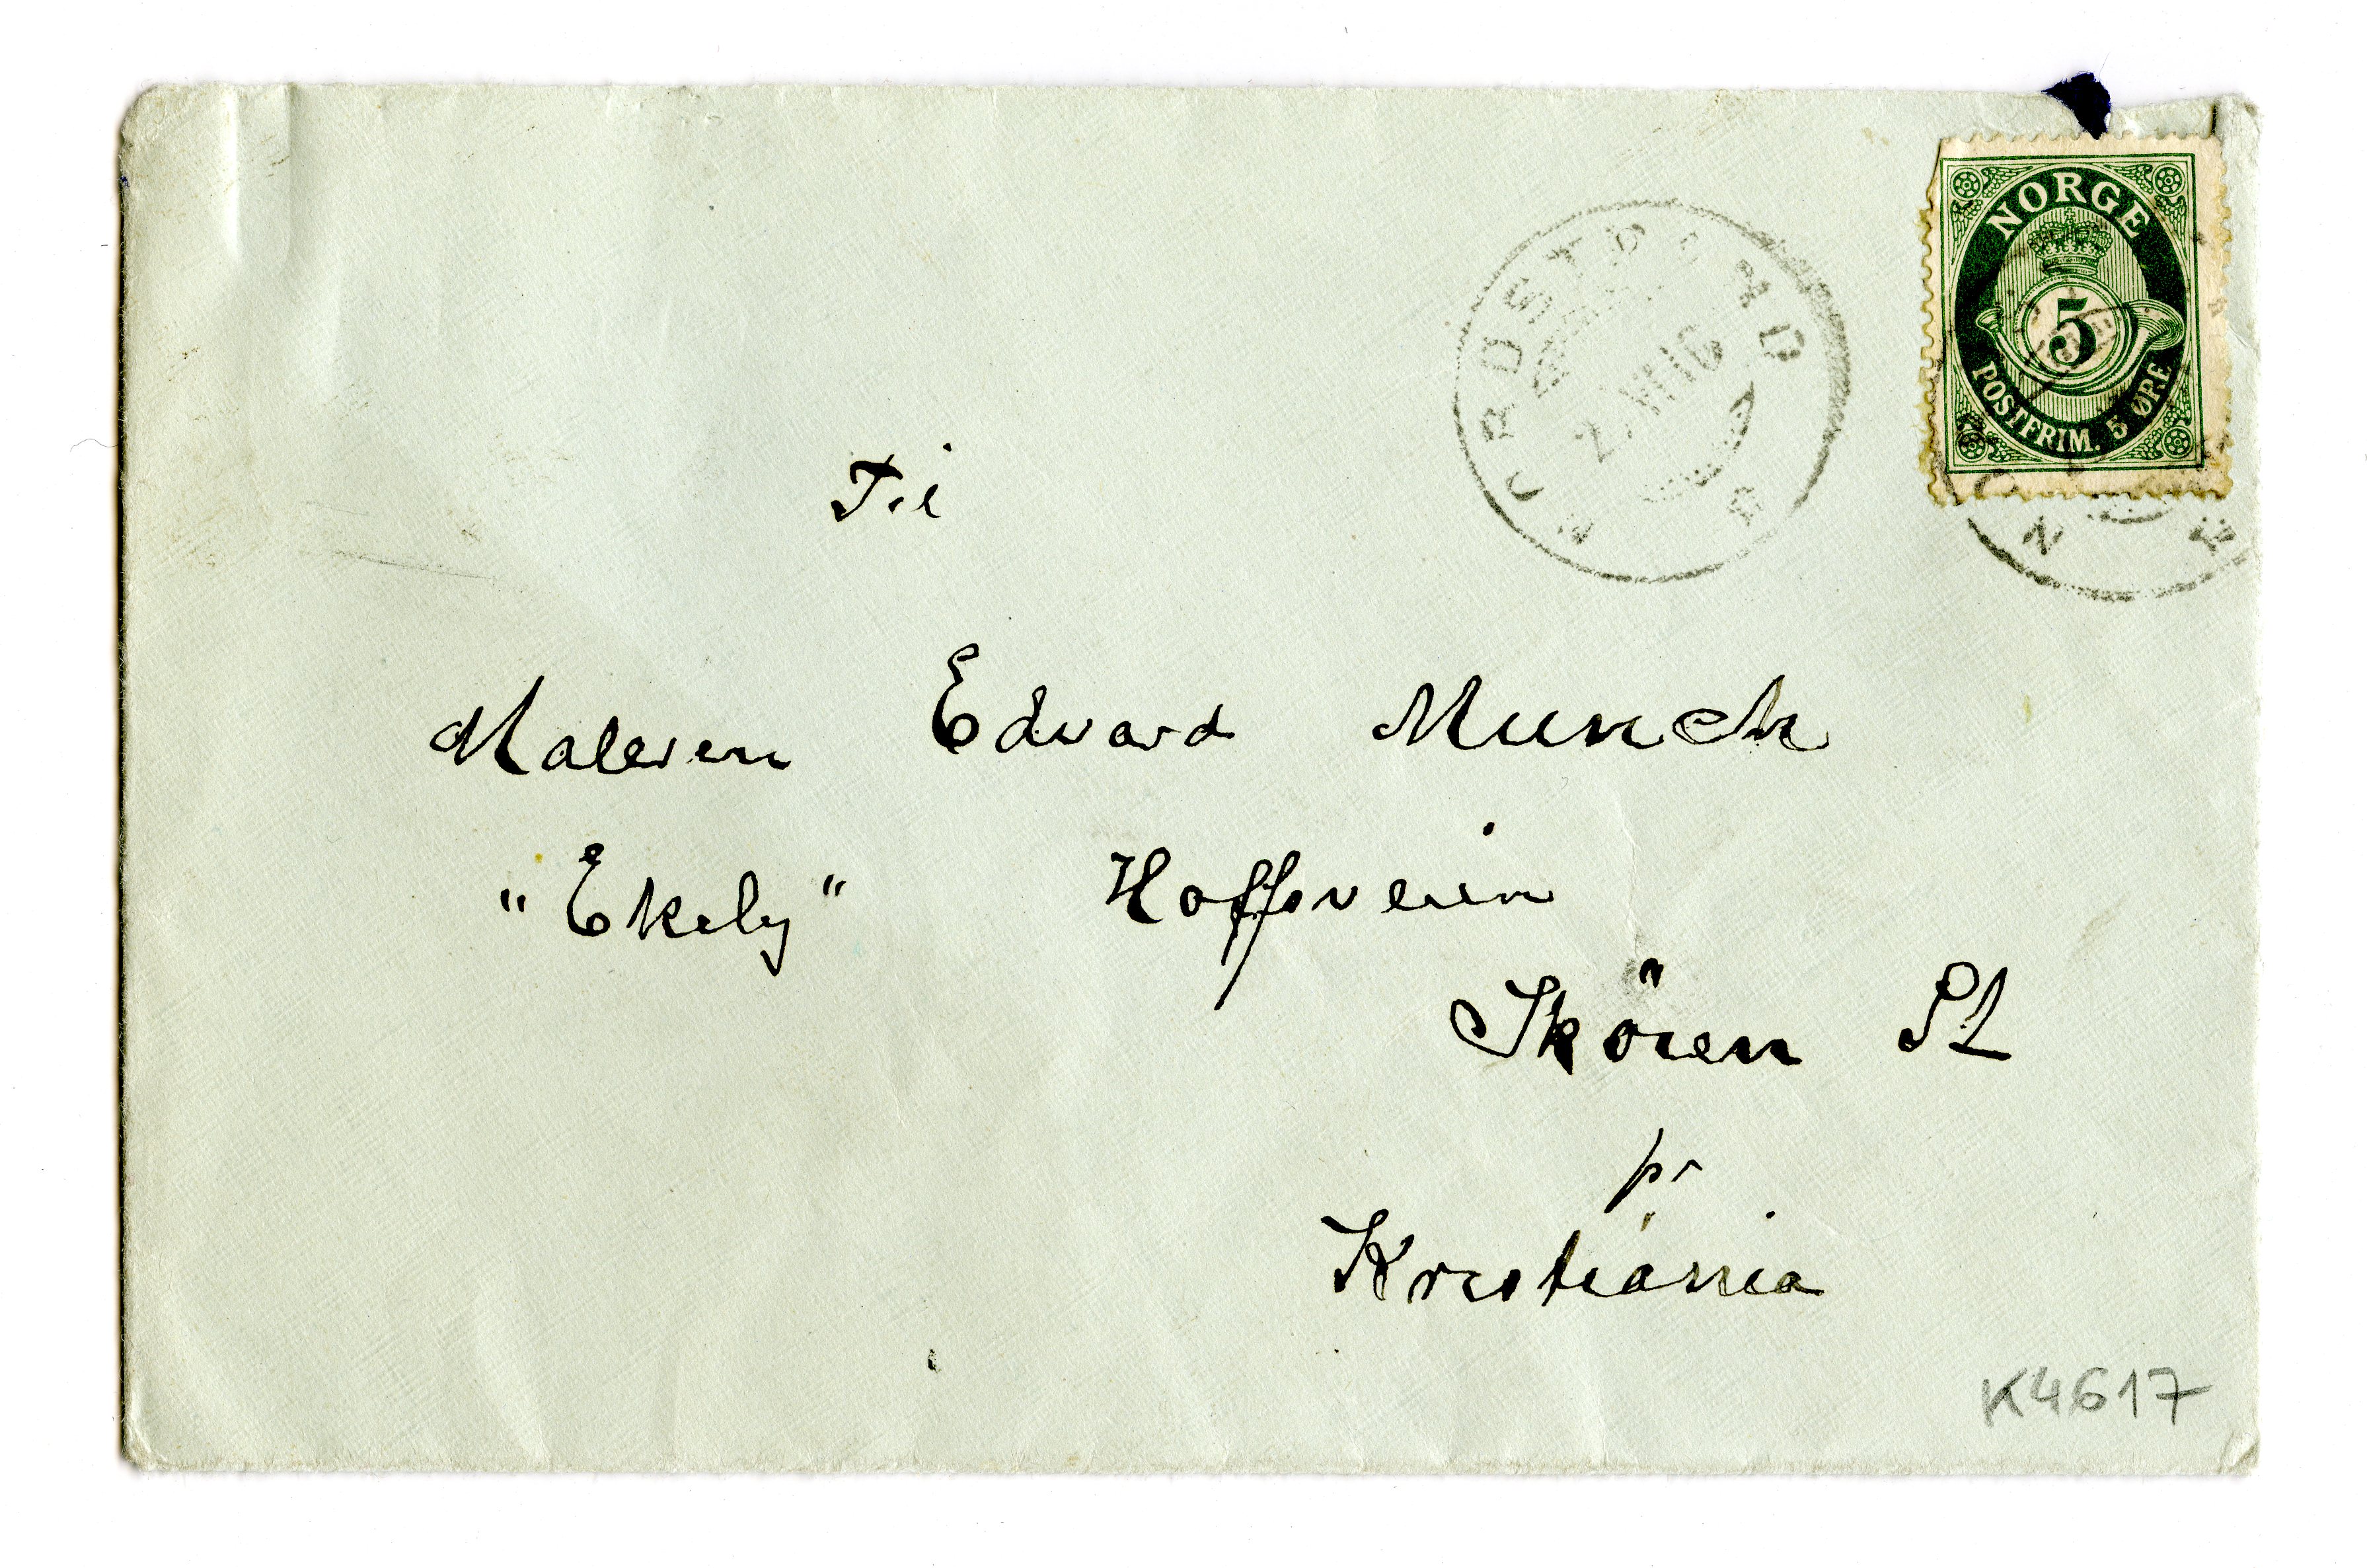 NORGE
5
POSTFRIM. 5 ØRE
NORDSTRAND
Til
Maleren Edvard Munch
"Ekely" Hoffsveien
Sköien St
pr
Kristiania
K4617